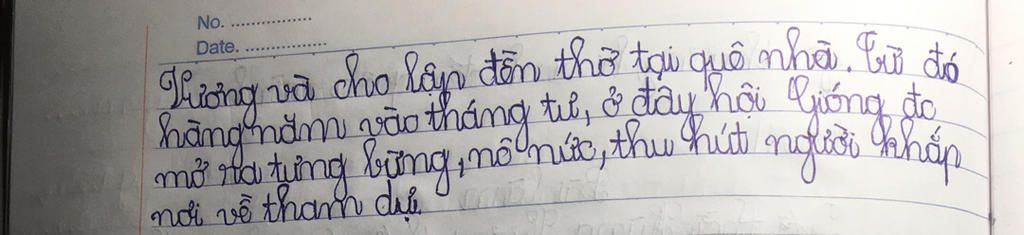 No. ................
Date. ................
Vương và cho lập đền thờ tại quê nhà. Từ đó
hàng năm vào tháng tư, ở đây hội Gióng đc
mở ra tưng bừng, nô nức, thu hút người khắp
nơi về tham dự.